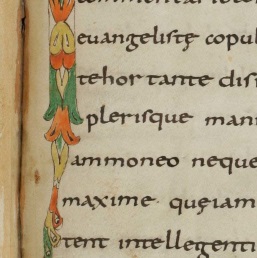 euangelistę copul
tehor tante dis
plerisque mani
ammoneo neque
maxime quęiam
tent intellegenti